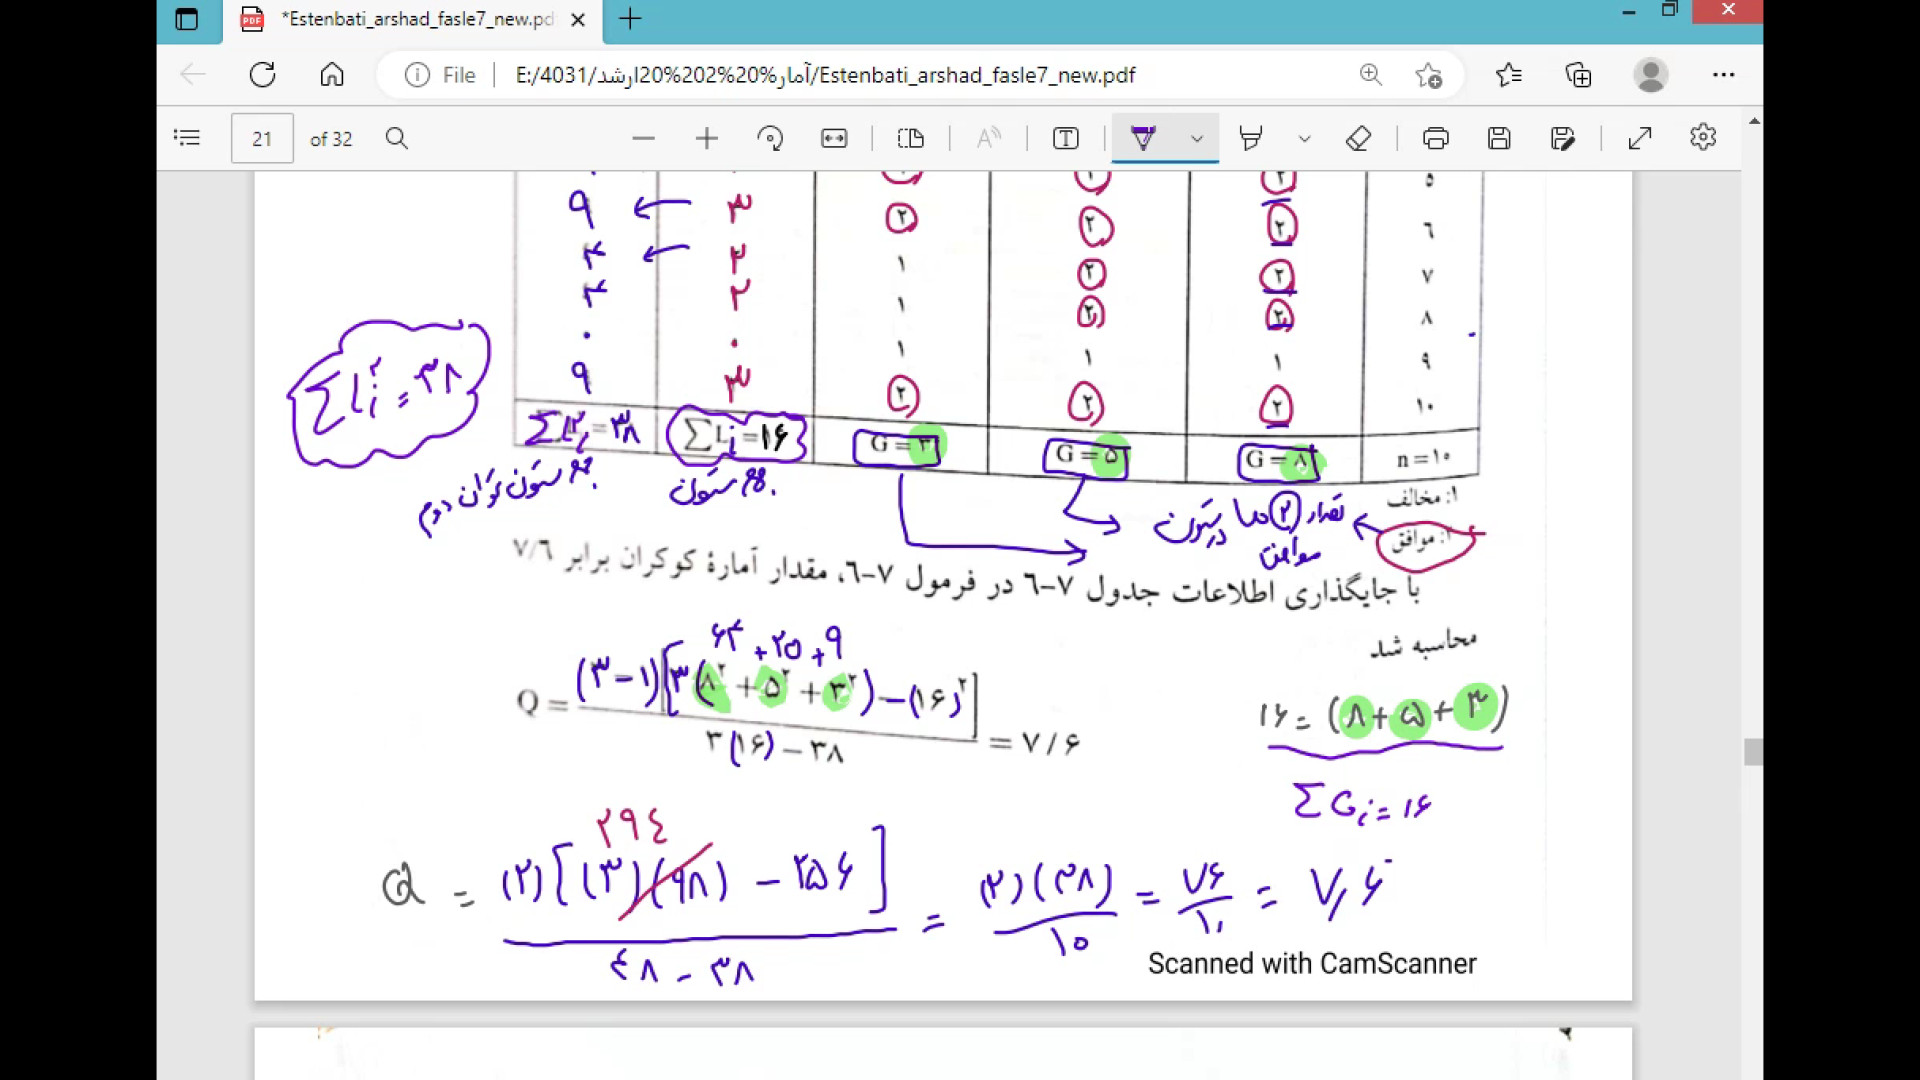 *Estenbati_arshad_fasle7_new.pdf
File E:/4031/آمار%20%202%20ارشد/Estenbati_arshad_fasle7_new.pdf
21 of 32
۵
۹ ۳ ۲ ۲ ۲ ۶
۴ ۲ ۱ ۲ ۲ ۷
۴ ۲ ۱ ۲ ۲ ۸
۰ ۰ ۱ ۱ ۱ ۹
۹ ۳ ۲ ۲ ۲ ۱۰
∑Lᵢ² = ۳۸
∑Lᵢ² = ۳۸ ∑Lᵢ = ۱۶ G = ۳ G = ۵ G = ۸ n = ۱۰
جمع ستون توان دوم
جمع ستون
۱: مخالف
۲: موافق
تعداد ۲ ها در ستون
موافق
با جایگذاری اطلاعات جدول ۷-۶ در فرمول ۷-۶، مقدار آمارهٔ کوکران برابر ۷/۶
محاسبه شد
۶۴ + ۲۵ + ۹
Q = (۳ − ۱)[۳(۸² + ۵² + ۳²) − (۱۶)²] / ۳(۱۶) − ۳۸ = ۷/۶
۱۶ = (۸ + ۵ + ۳)
∑Gᵢ = ۱۶
۲۹٤
Q = (۲)[(۳)(۹۸) − ۲۵۶] / ٤۸ − ۳۸ = (۲)(۳۸) / ۱۰ = ۷۶ / ۱۰ = ۷,۶
Scanned with CamScanner